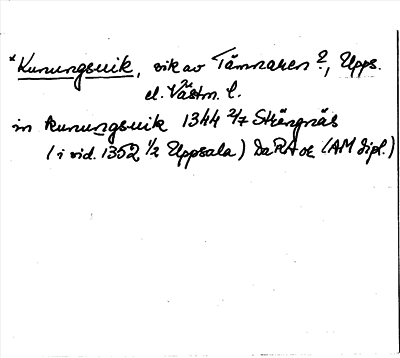 *Kunungsuik, vik av Tämnaren?, Upps.
el. Västm. l.
in kunungsuik 1344 2/7 Strängnäs
(i vid. 1352 1/2 Uppsala) DaRA or (AM dipl.)